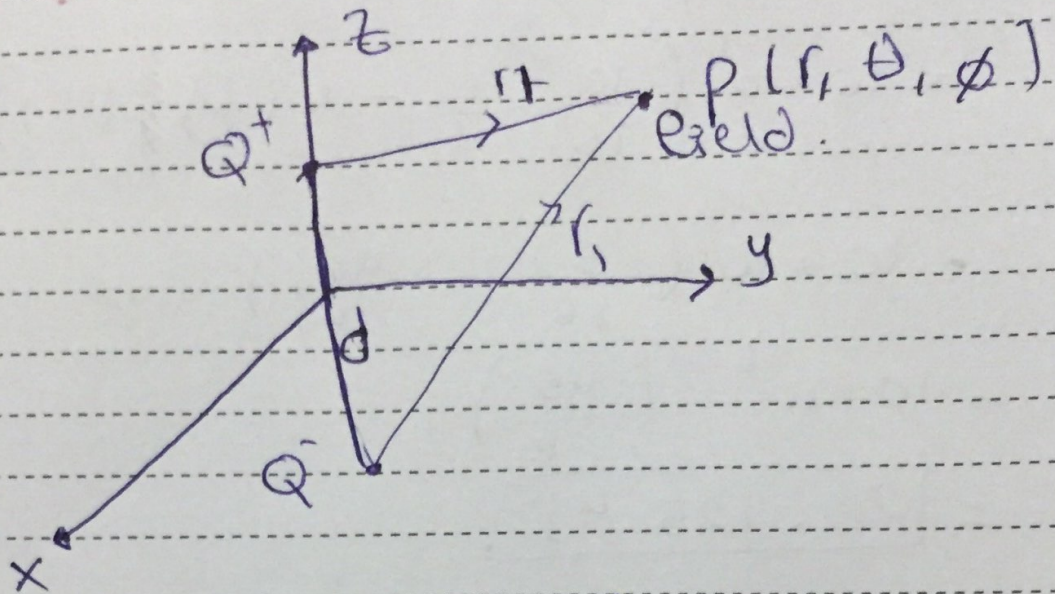 z
r+
p (r, θ, ϕ)
Q+
field.
r,
y
d
Q-
x